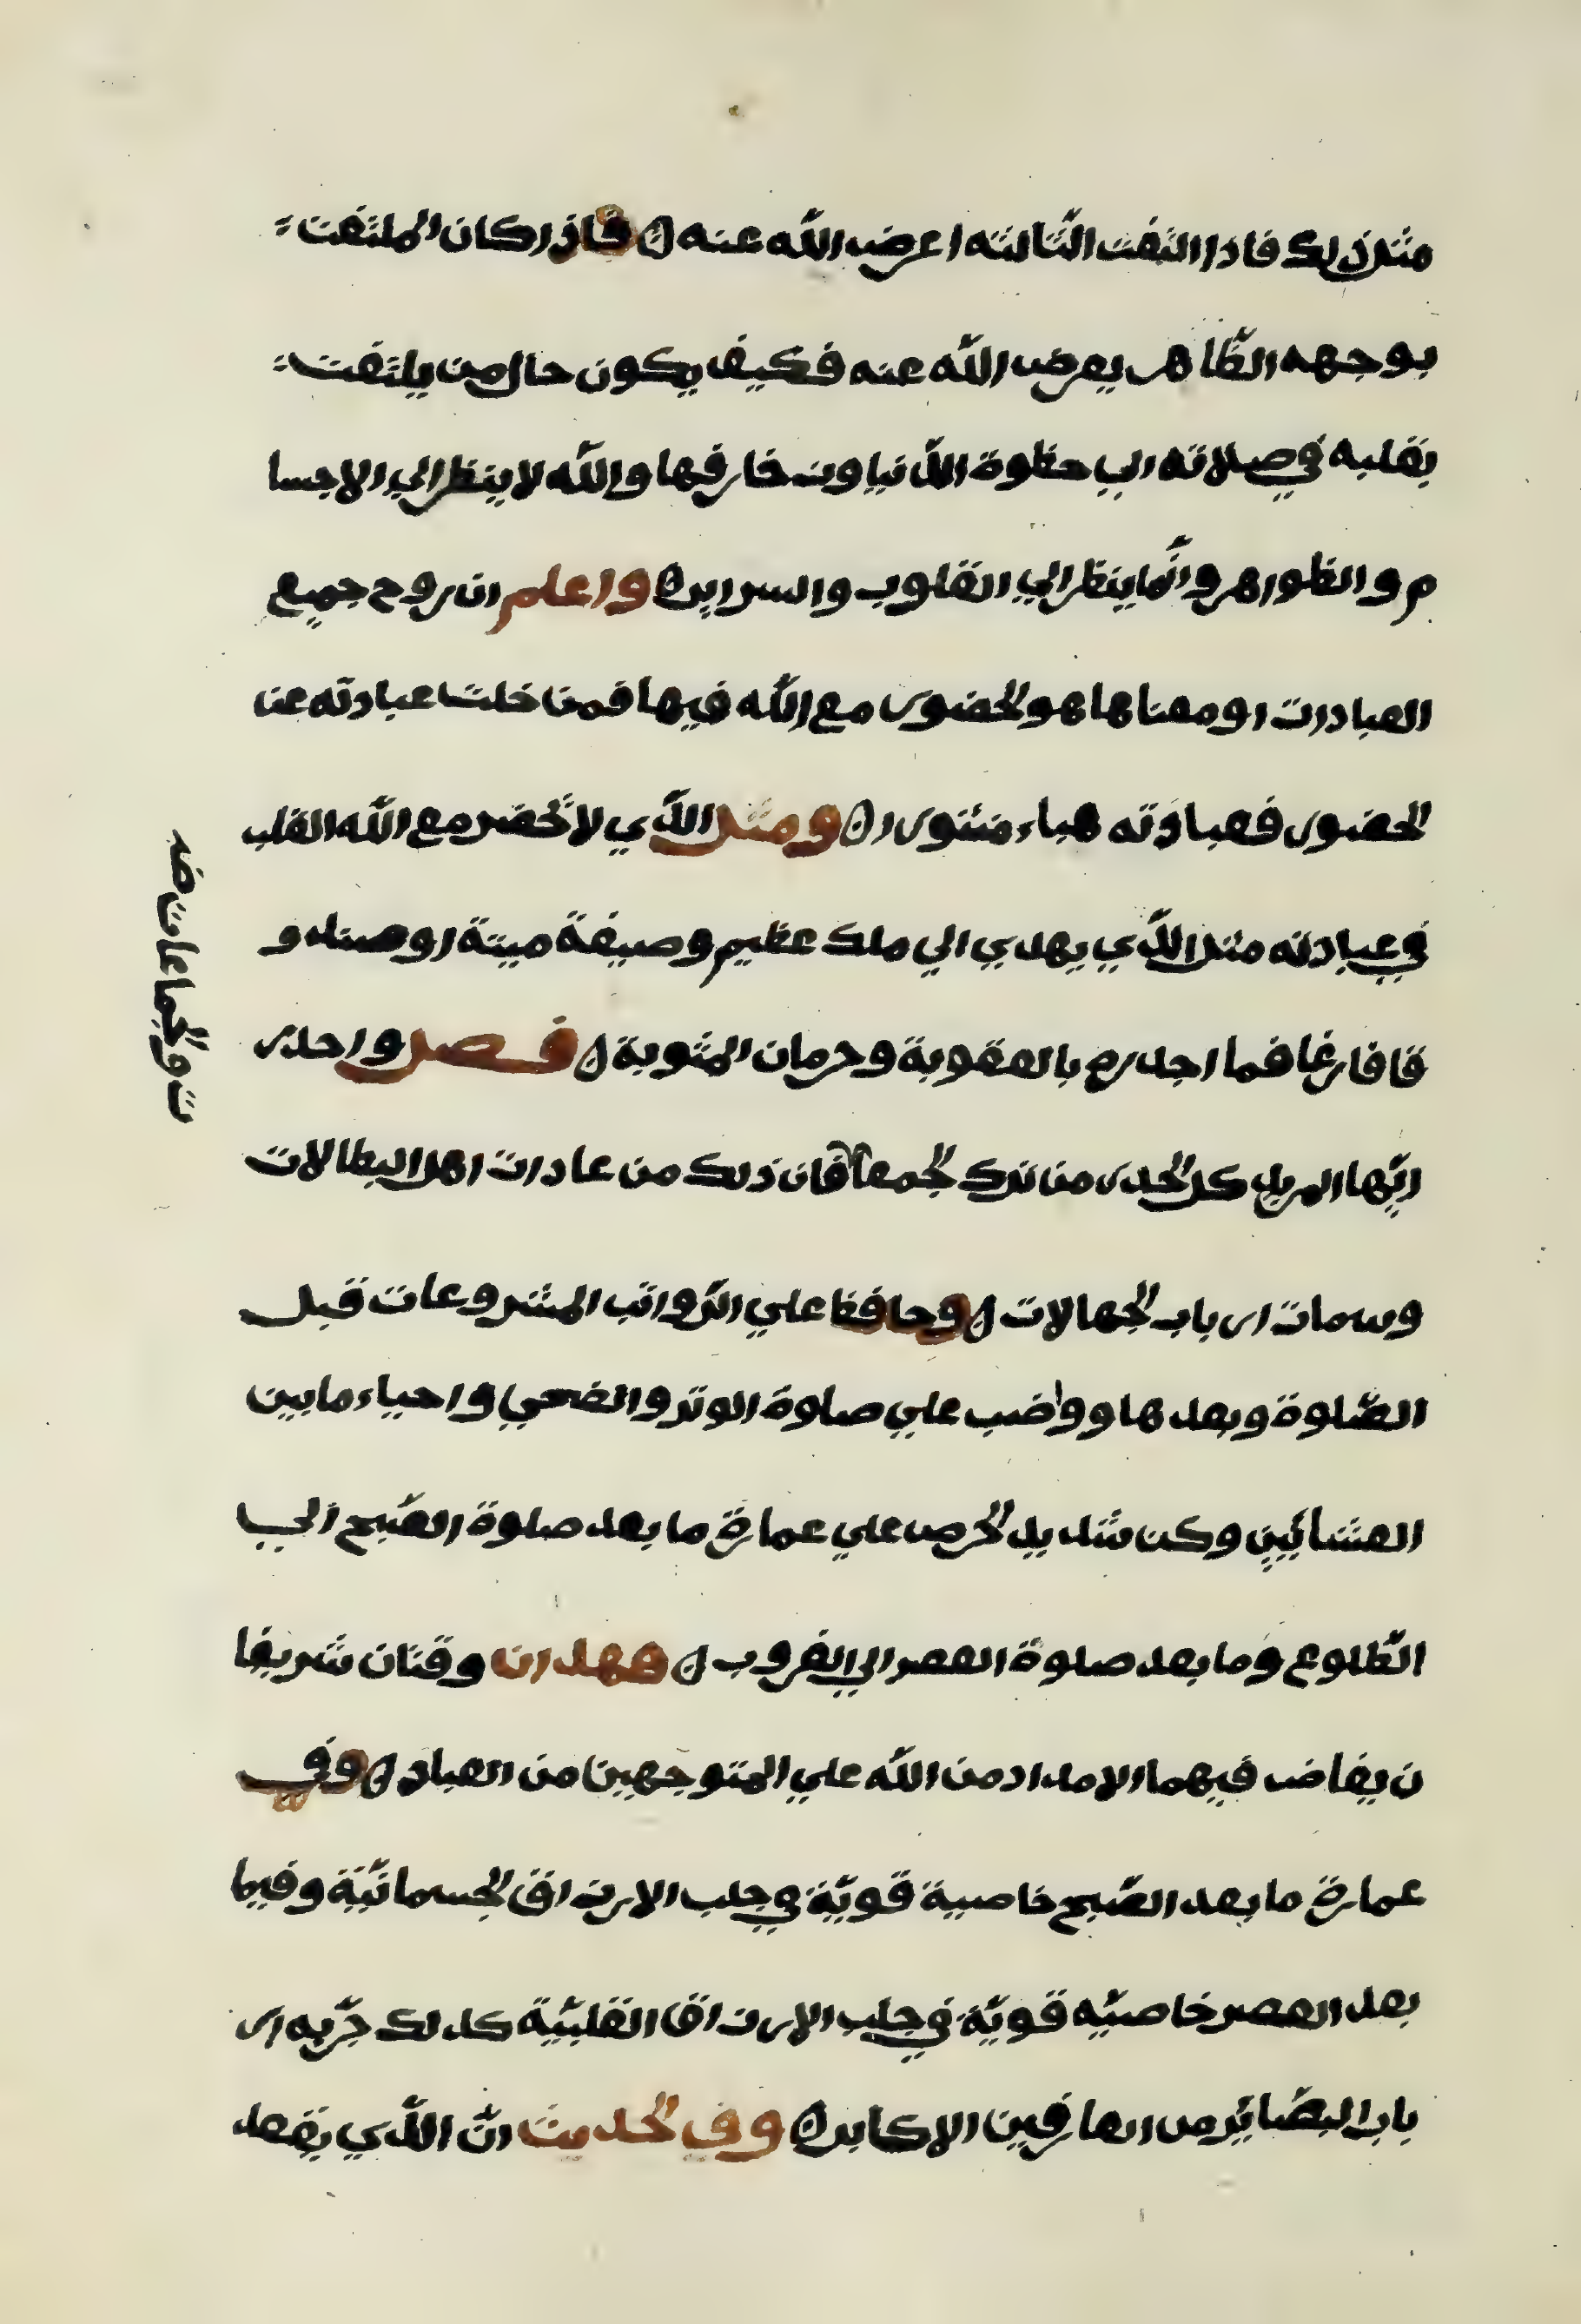 مثل ذلك فاذا التفت الثّالثة اعرض اللّه عنه ۞ فاذا كان الملتفت
بوجهه الظّاهر يعرض اللّه عنه فكيف يكون حال من يلتفت
بقلبه في صلاته الي حظوة الدّنيا وزخارفها واللّه لا ينظر الي الاجسا
م والظواهر وانّما ينظر الي القلوب والسراير ۞ واعلم ان روح جميع
العبادات ومعناها هو الحضور مع اللّه فيها فمن خلت عبادته عن
الحضور فعبادته هباء منثورا ۞ ومثل الذّي لا تحضر مع اللّه القلب
في عبادته مثل الذّي يهدي الي ملك عظيم وصيفة ميتة او صندو
قا فارغا فما اجدره بالعقوبة وحرمان المثوبة ۞ فصل واحذر
ايّها المريد كل الحذر من ترك الجمعا فان ذلك من عادات اهل البطالات
ت والجماعات ضه
وسمات ارباب الجهالات ۞ وحافظ علي الرّواتب المشروعات قبل
الصّلوة وبعدها وواضب علي صلوة الوتر والضحي واحياء ما بين
العشائين وكن شديد الحرص علي عمارة ما بعد صلوة الصّبح الي
الطّلوع وما بعد صلوة العصر الي الغروب ۞ فهذان وقتان شريفا
ن يفاض فيهما الامداد من اللّه علي المتوجهين من العباد ۞ وفي
عمارة ما بعد الصّبح خاصية قويّة في جلب الارزاق الجسمانيّة وفيما
بعد العصر خاصيّه قويّة في جلب الارزاق القلبيّة كذلك جرّبه ار
باب البصّائر من العارفين الاكابر ۞ وفي الحديث انّ الذّي يقعد